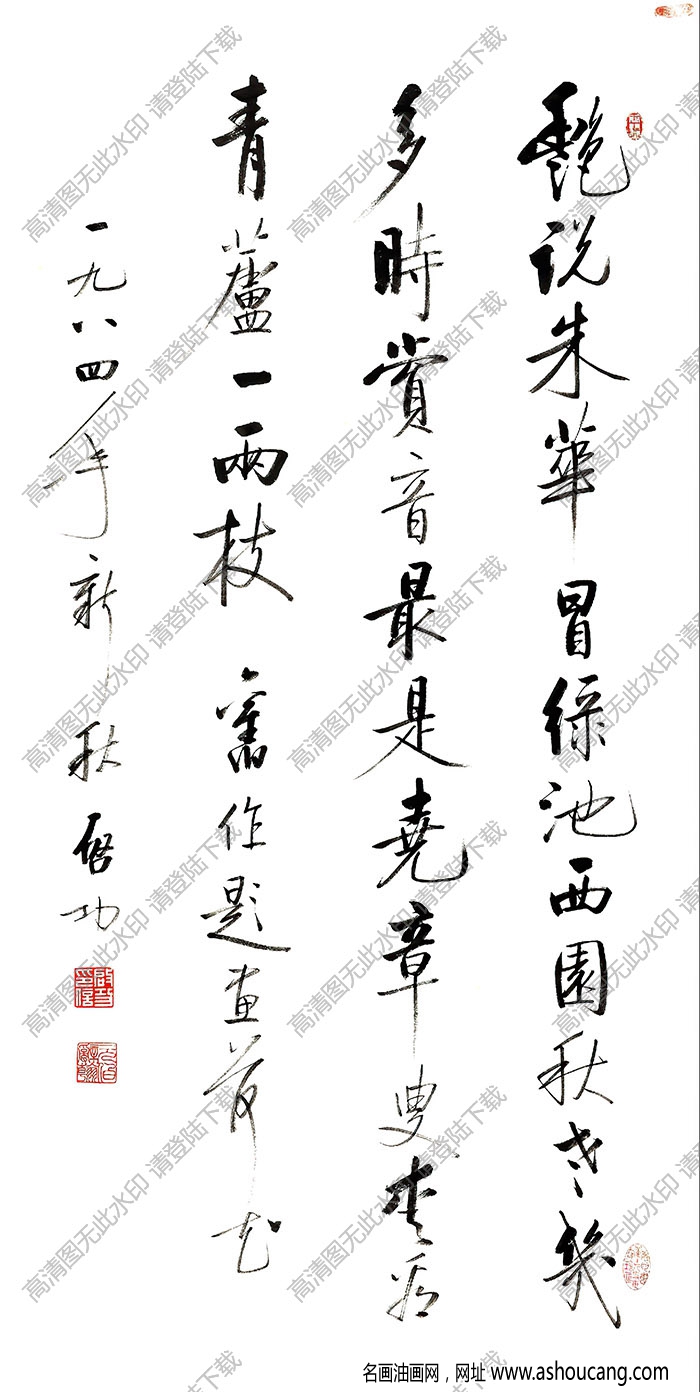 艷说朱華冒綠池西園秋老幾
多時賞音最是堯章叟看
青蘆一兩枝 舊作題畫荷花
一九八四年新秋启功
高清图无此水印 请登陆下载
名画油画网，网址 www.ashoucang.com